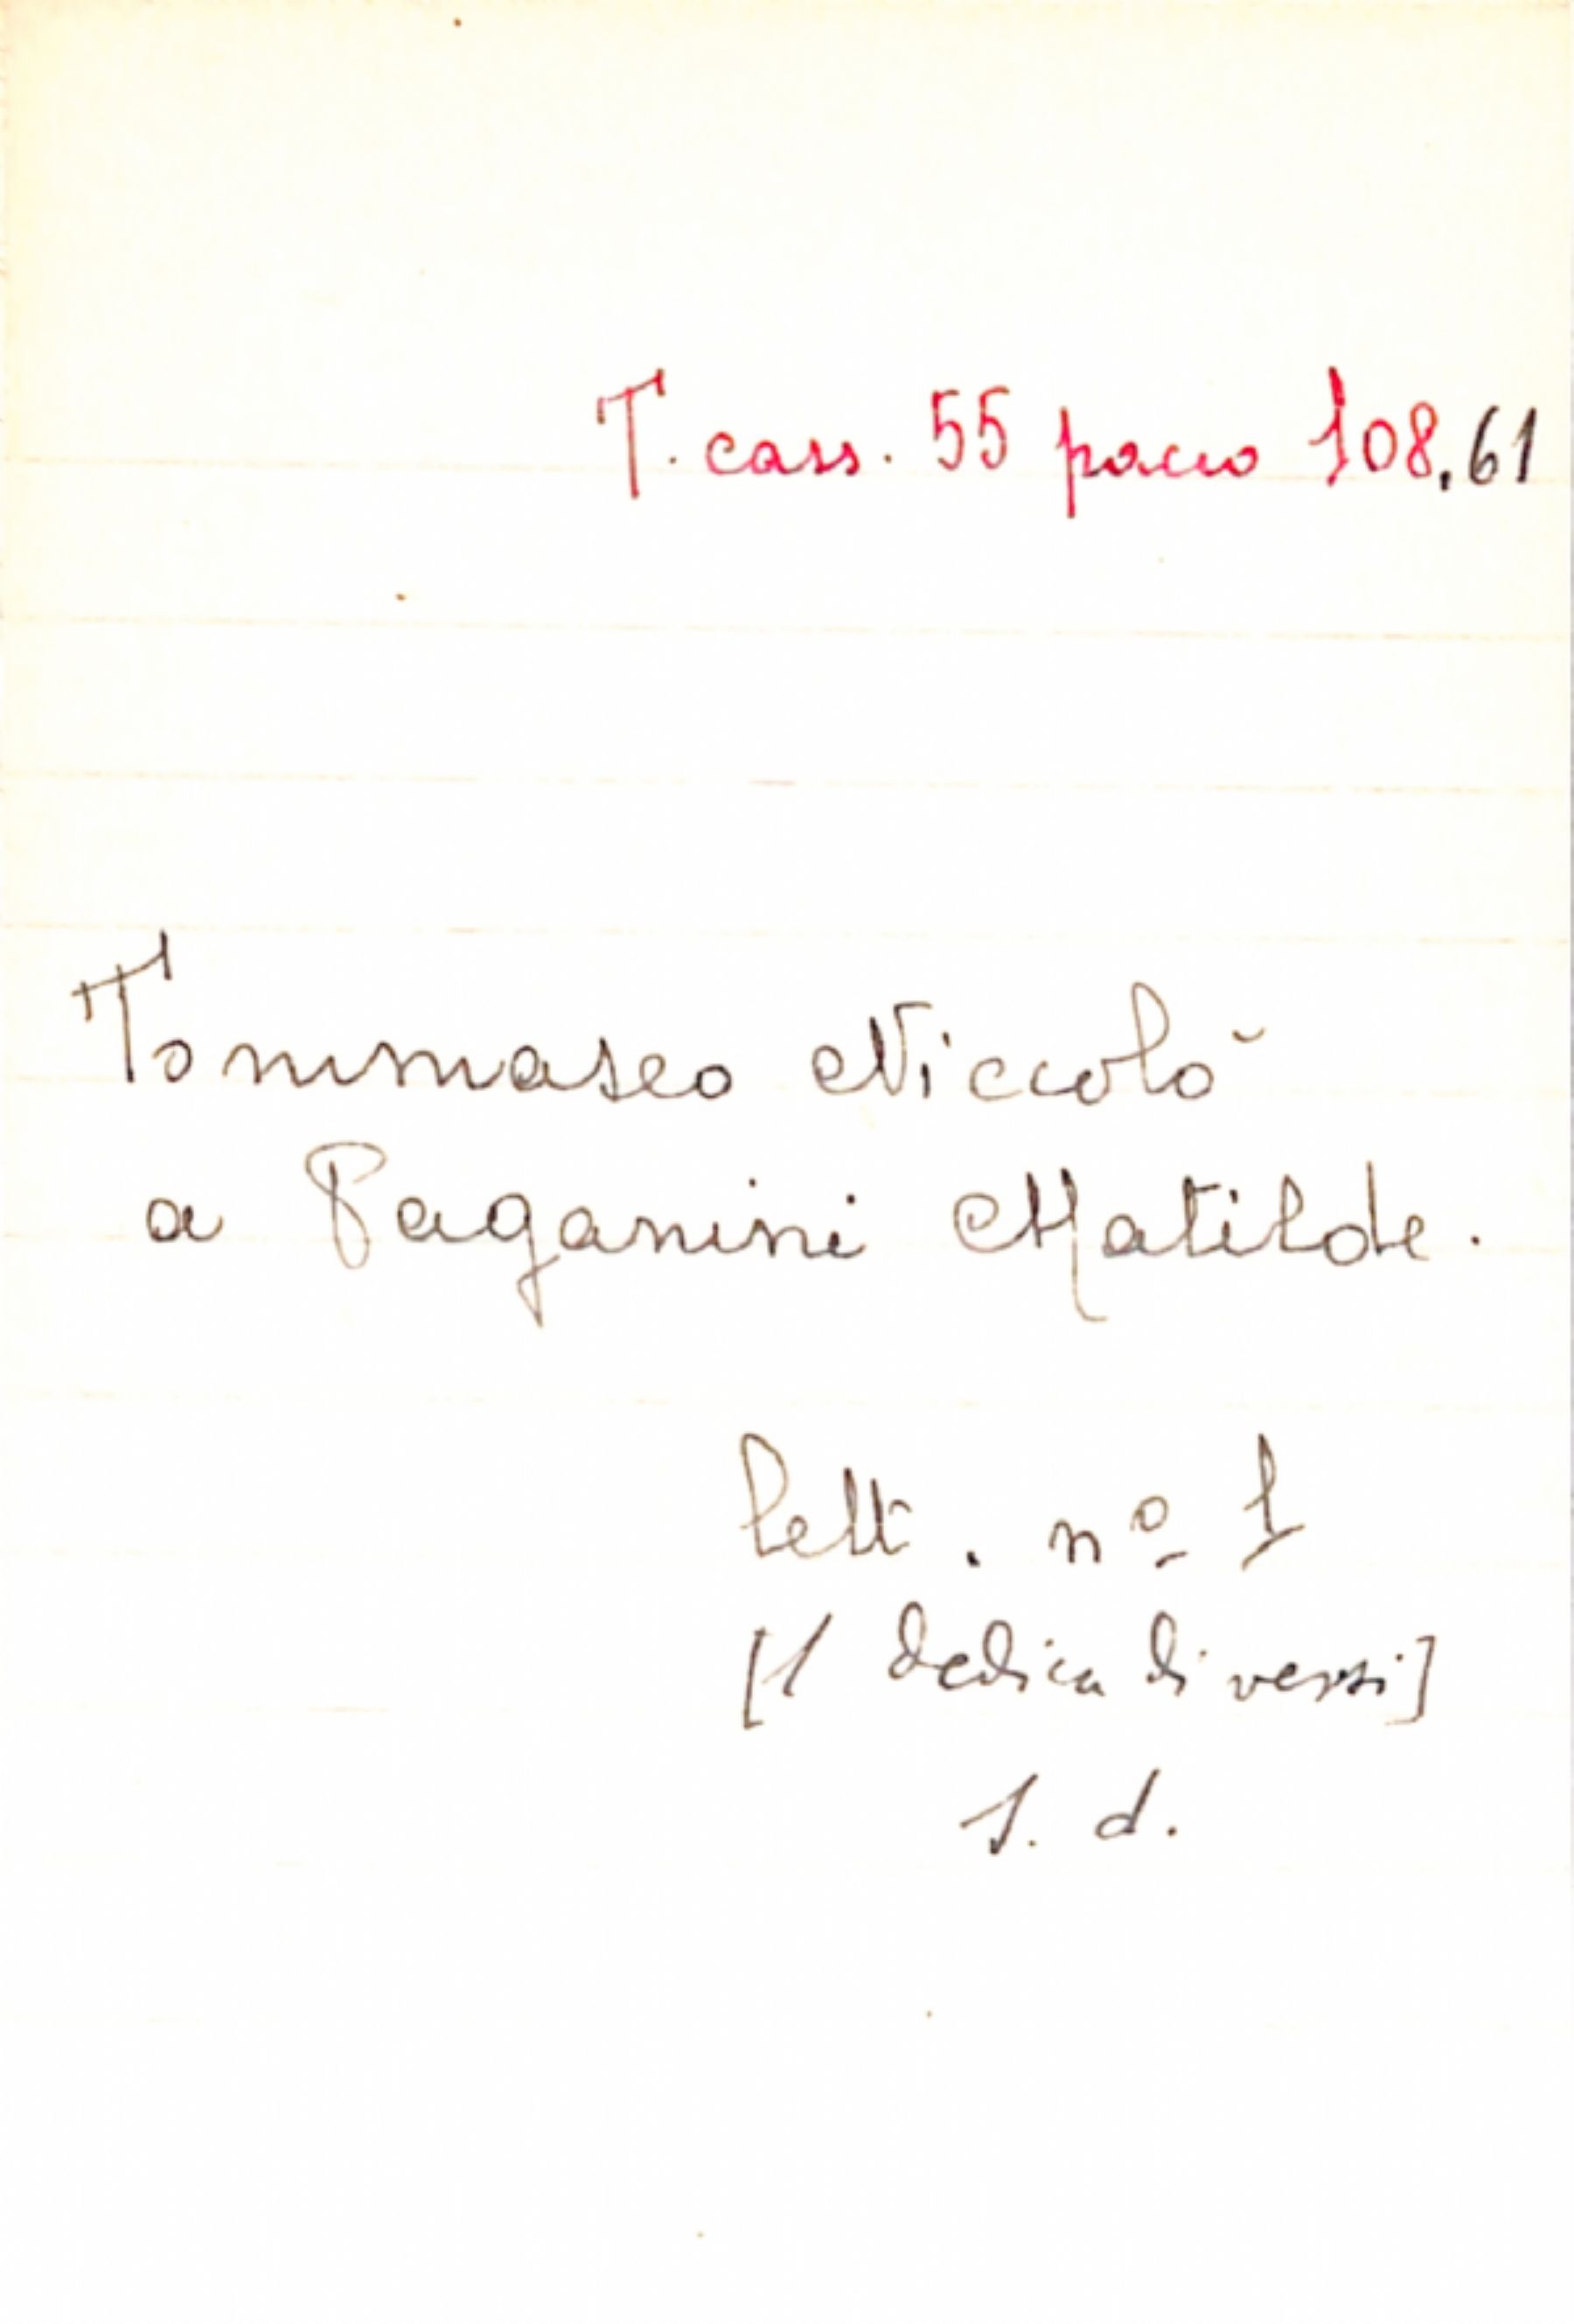 T. cass. 55 pacco 108.61
Tommaseo Niccolò
a Paganini Matilde.
Lett. nº 1
[1 dedica di versi]
s. d.